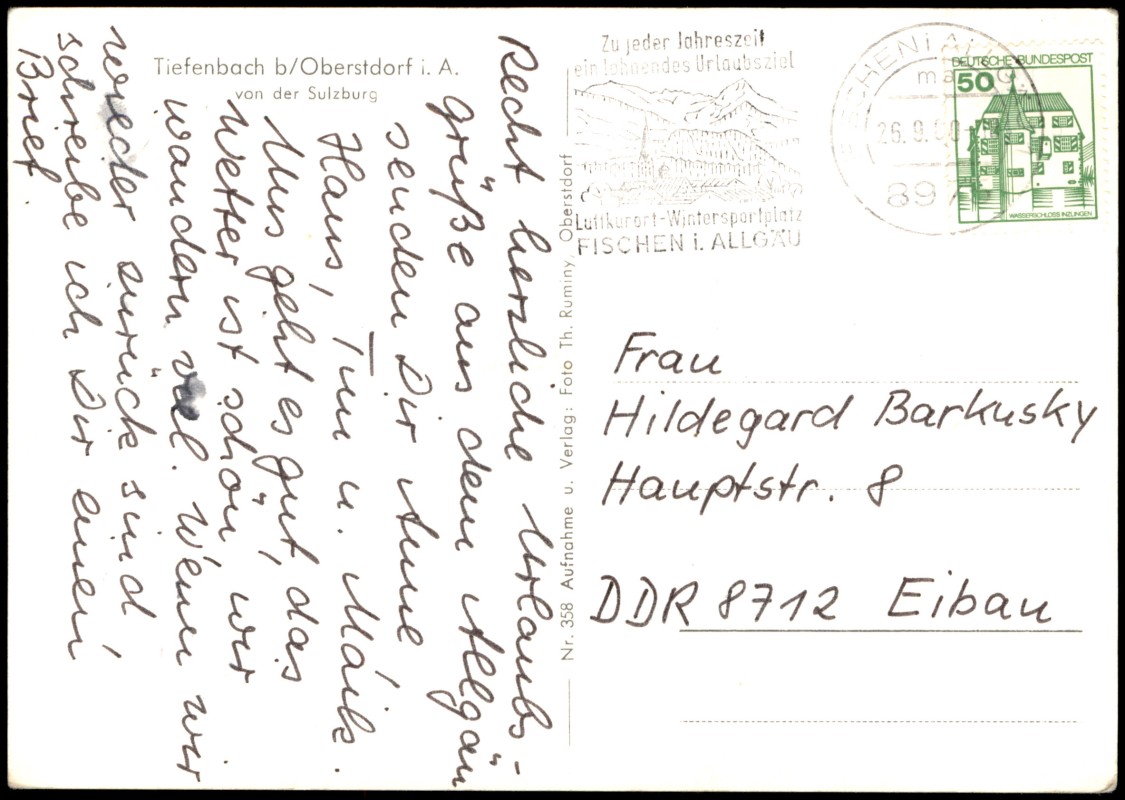 Tiefenbach b/Oberstdorf i. A.
von der Sulzburg
Recht herzliche Urlaubs-
grüße aus dem Allgäu
senden Dir Anne
Hans, Tim u. Maik.
Uns geht es gut, das
Wetter ist schön, wir
wandern viel. Wenn wir
wieder zurück sind
schreibe ich Dir einen
Brief
Nr. 358 Aufnahme u. Verlag: Foto Th. Ruminy, Oberstdorf
Zu jeder Jahreszeit
ein lohnendes Urlaubsziel
Luftkurort-Wintersportplatz
FISCHEN i. ALLGÄU
26.9.80
897
DEUTSCHE BUNDESPOST
50
WASSERSCHLOSS INZLINGEN
Frau
Hildegard Barkusky
Hauptstr. 8
DDR 8712 Eibau